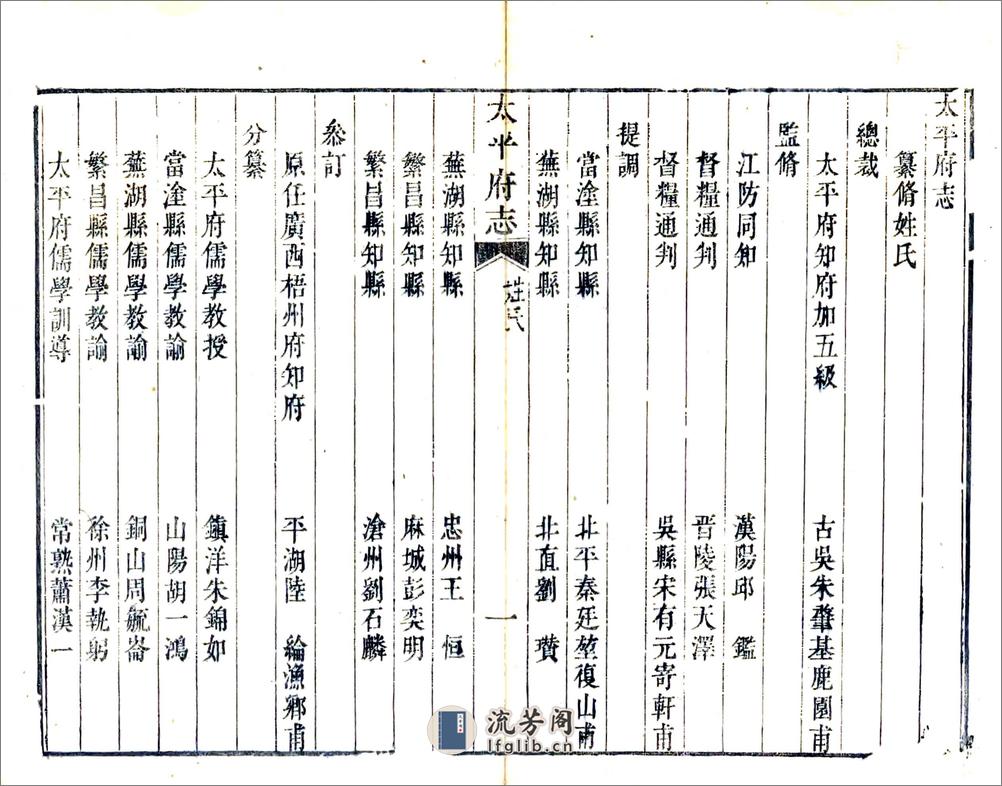 太平府志
纂脩姓氏
總裁
太平府知府加五級 古吳朱肇基鹿園甫
監脩
江防同知 漢陽邱 鑑
督糧通判 晋陵張天澤
督糧通判 吳縣宋有元寄軒甫
提調
當塗縣知縣 北平秦廷堃復山甫
蕪湖縣知縣 北直劉 瓚
太平府志 姓氏 一
蕪湖縣知縣 忠州王 恒
繁昌縣知縣 麻城彭奕明
繁昌縣知縣 滄州劉石麟
叅訂
原任廣西梧州府知府 平湖陸 綸漁鄉甫
分纂
太平府儒學教授 鎮洋朱錦如
當塗縣儒學教諭 山陽胡一鴻
蕪湖縣儒學教諭 銅山周毓崙
繁昌縣儒學教諭 徐州李執躬
太平府儒學訓導 常熟蕭漢一
流芳阁
lfglib.cn